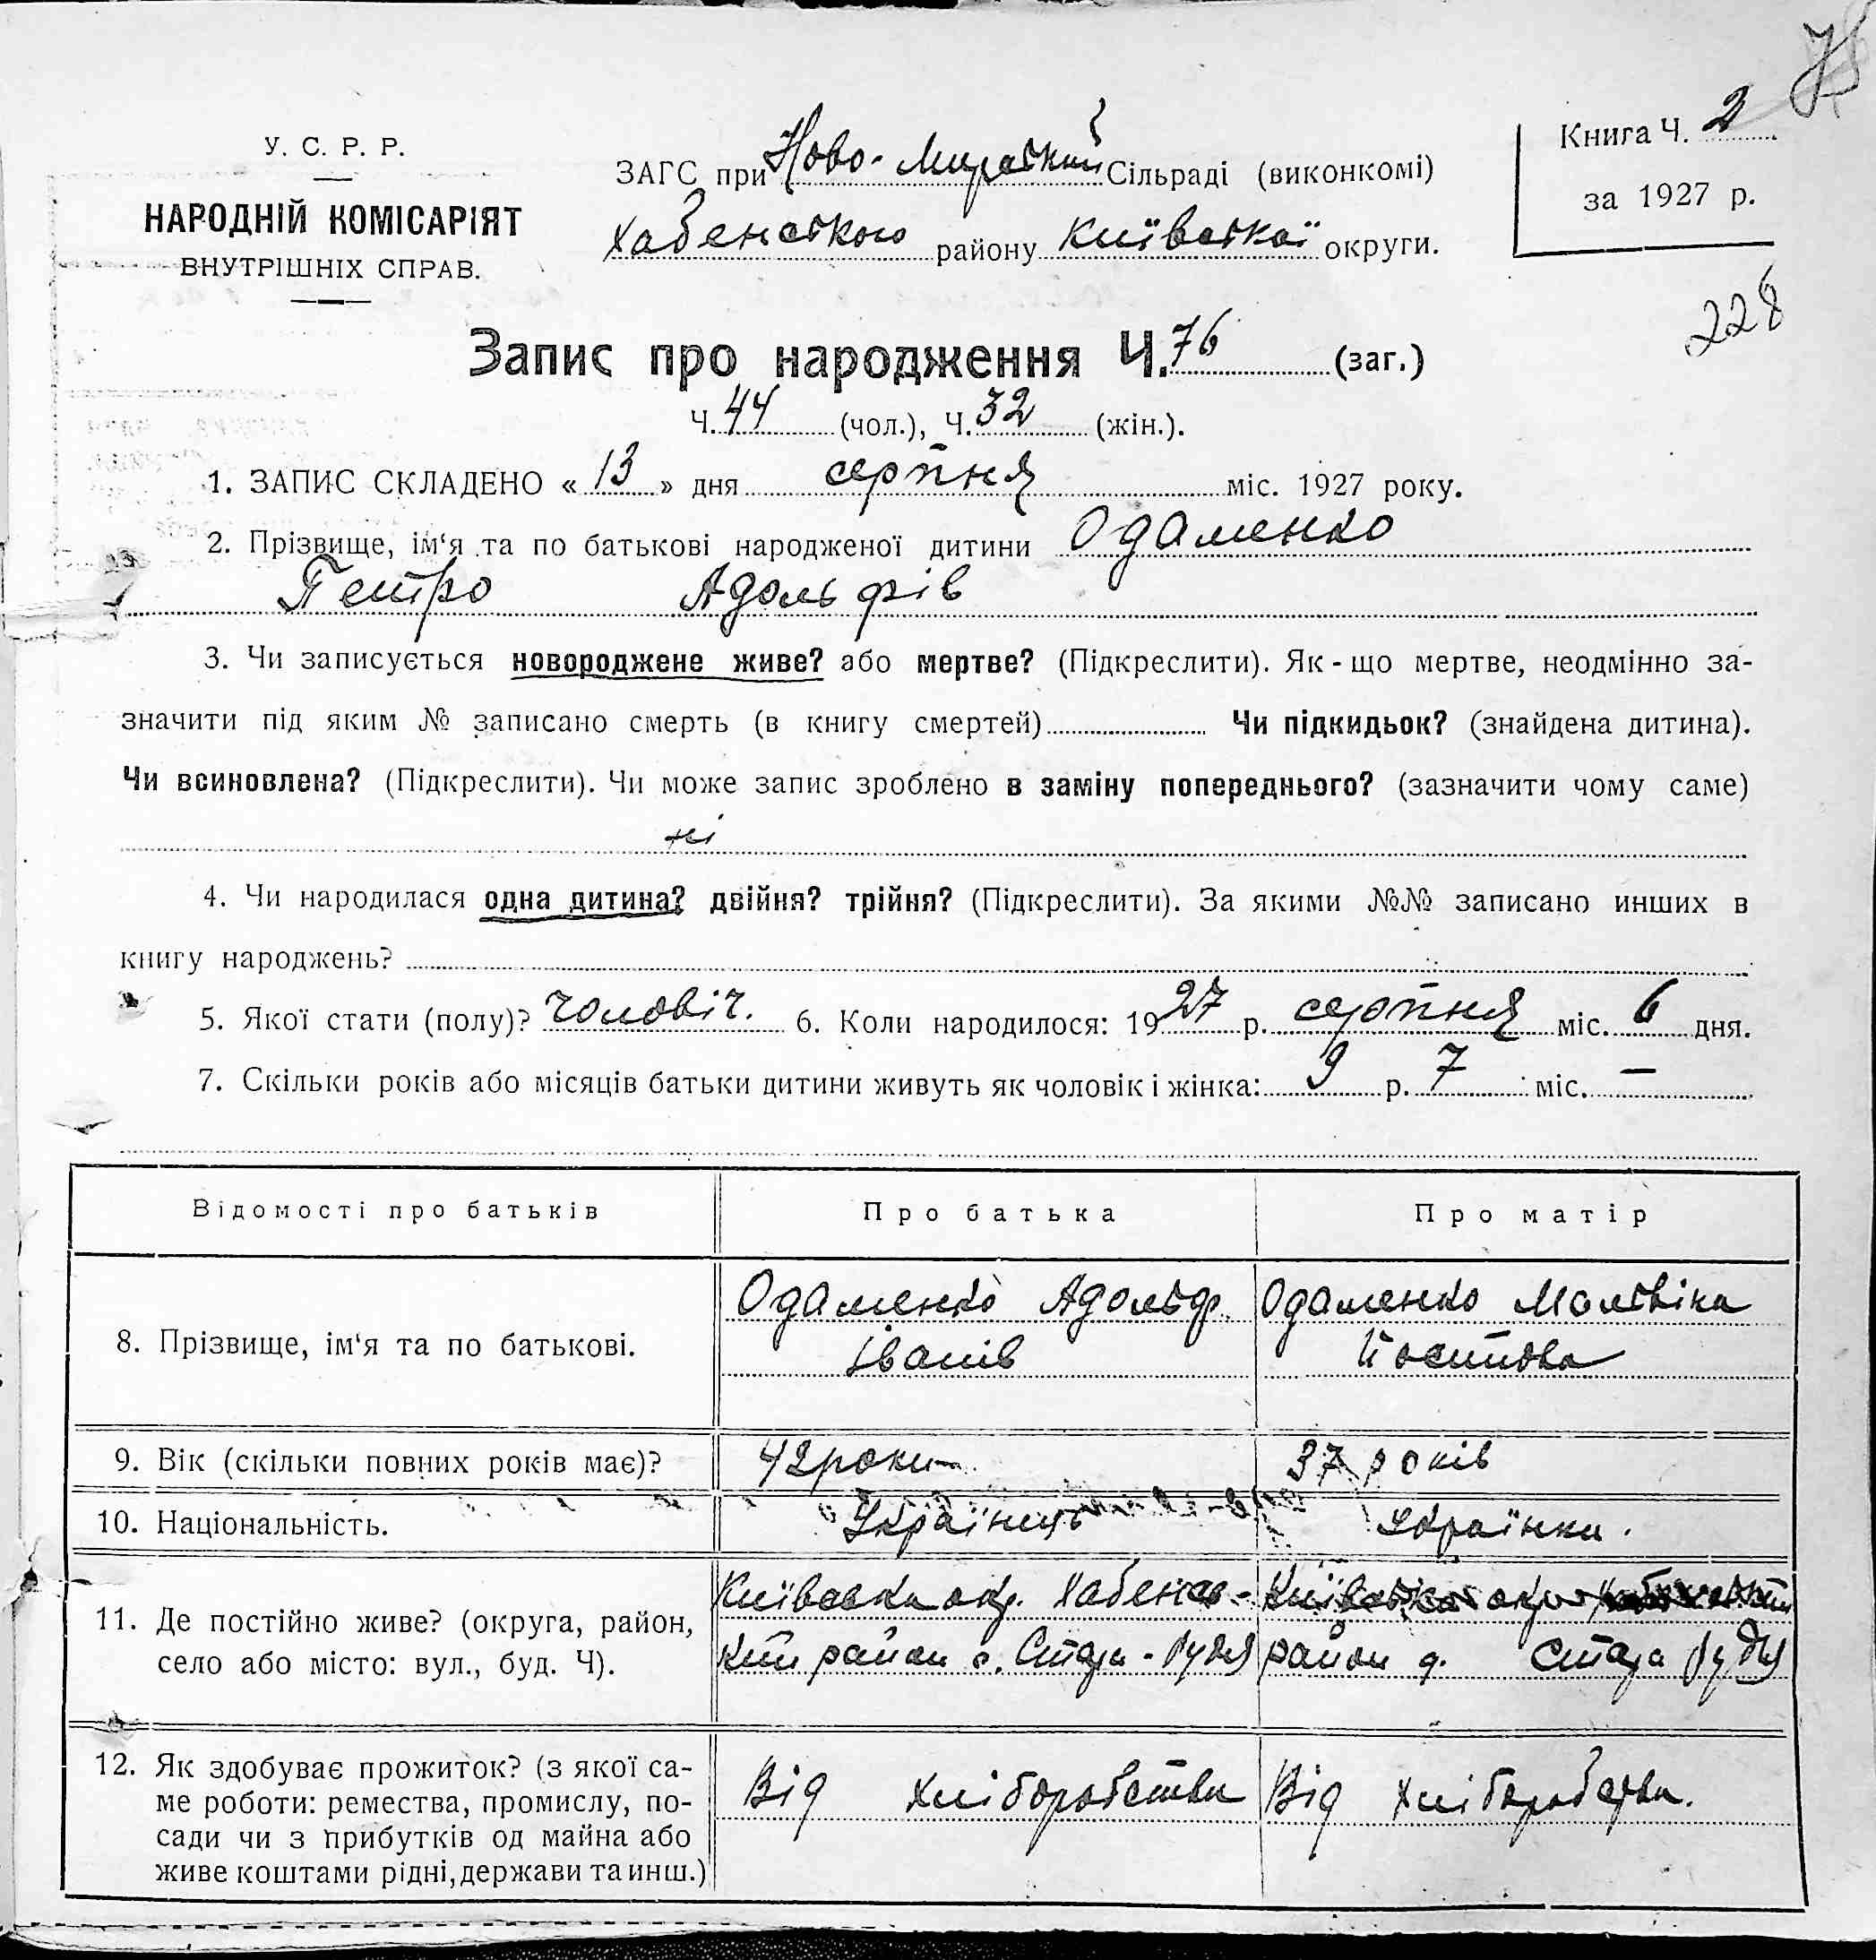 75
Книга Ч. 2
за 1927 р.
У. С. Р. Р.
НАРОДНІЙ КОМІСАРІЯТ
ВНУТРІШНІХ СПРАВ.
ЗАГС при Ново-Мирський Сільраді (виконкомі)
Хабенського району Київської округи.
228
Запис про народження Ч. 76 (заг.)
Ч. 44 (чол.), Ч. 32 (жін.).
1. ЗАПИС СКЛАДЕНО « 13 » дня серпня міс. 1927 року.
2. Прізвище, ім‘я та по батькові народженої дитини Одаменко
Петро Адольфів
3. Чи записується новороджене живе? або мертве? (Підкреслити). Як-що мертве, неодмінно за-
значити під яким № записано смерть (в книгу смертей) Чи підкидьок? (знайдена дитина).
Чи всиновлена? (Підкреслити). Чи може запис зроблено в заміну попереднього? (зазначити чому саме)
ні
4. Чи народилася одна дитина? двійня? трійня? (Підкреслити). За якими №№ записано инших в
книгу народжень?
5. Якої стати (полу)? чоловіч. 6. Коли народилося: 1927 р. серпня міс. 6 дня.
7. Скільки років або місяців батьки дитини живуть як чоловік і жінка: 9 р. 7 міс. —
Відомості про батьків Про батька Про матір
8. Прізвище, ім‘я та по батькові.
Одаменко Адольф
Іванів
Одаменко Мальвіна
Йосипова
9. Вік (скільки повних років має)? 42 роки 37 років
10. Національність. Українець Українка.
11. Де постійно живе? (округа, район,
село або місто: вул., буд. Ч).
Київська окр. Хабенсь-
кий район с. Стара-Рудня
Київська окр. Хабенський
район д. Стара Рудня
12. Як здобуває прожиток? (з якої са-
ме роботи: ремества, промислу, по-
сади чи з прибутків од майна або
живе коштами рідні, держави та инш.)
Від хліборобства
Від хліборобства.